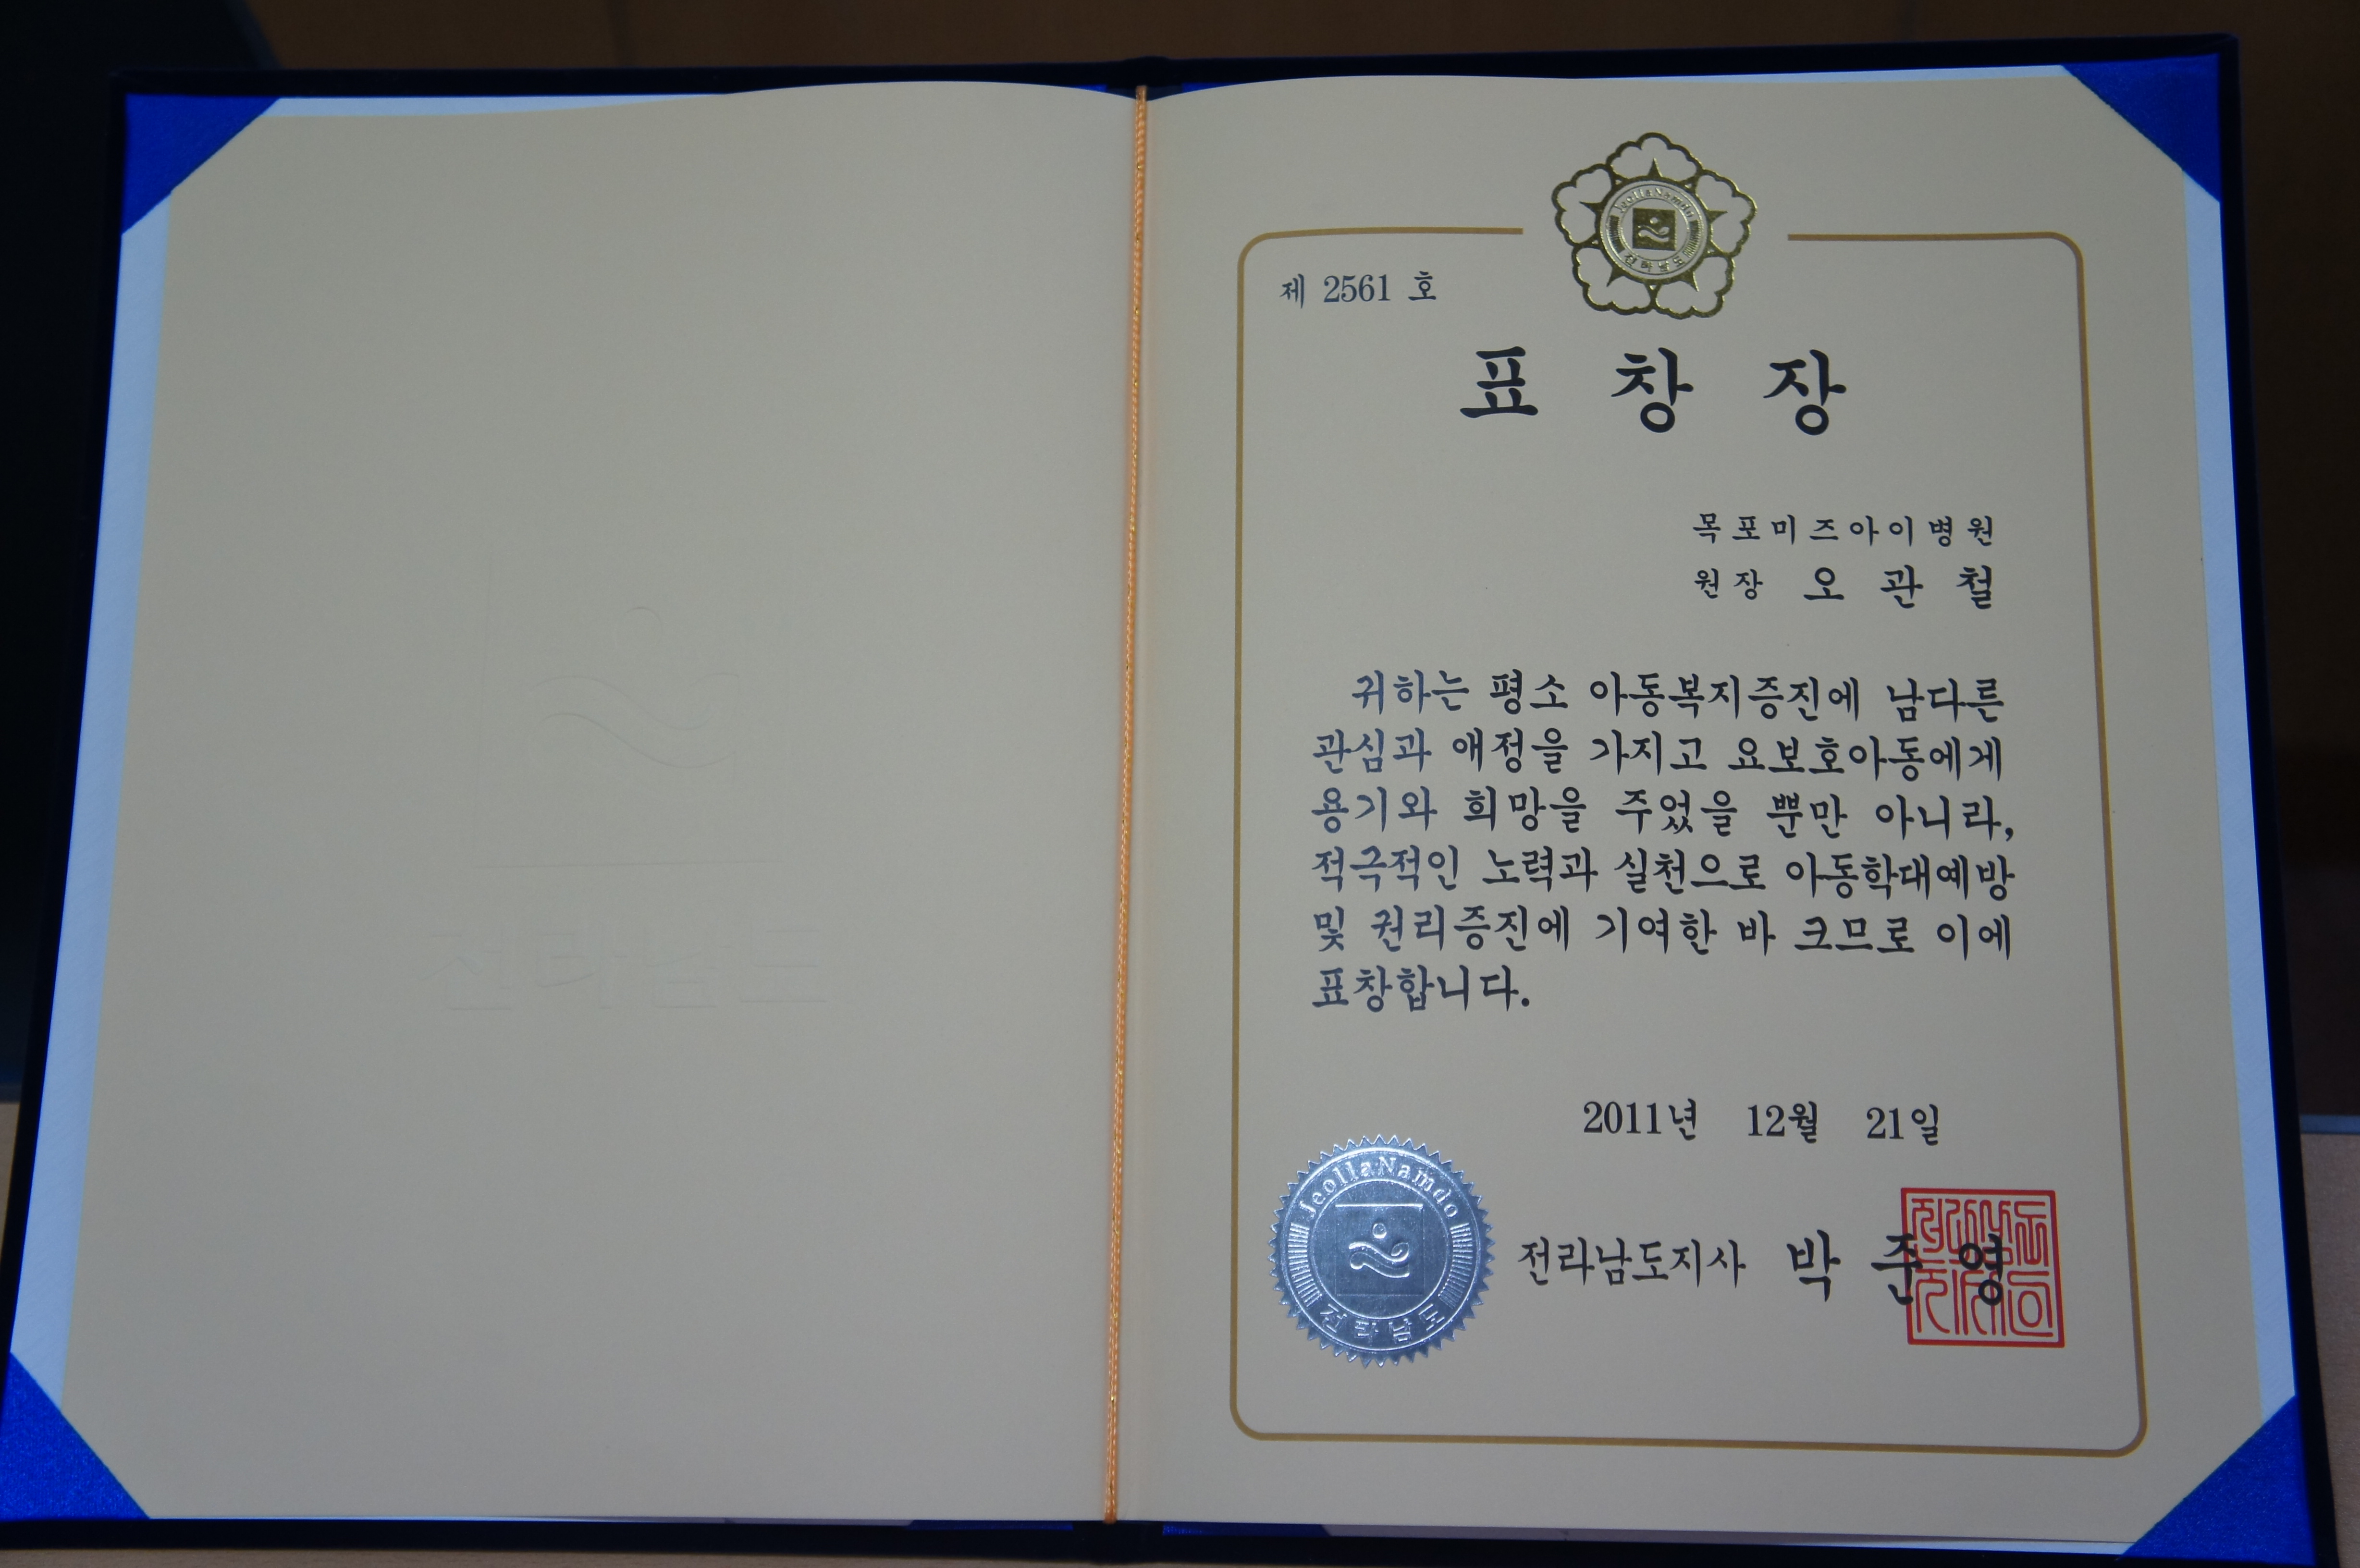 전라남도
JeollaNamdo
전라남도
제 2561 호
표 창 장
목포미즈아이병원
원장 오 관 철
귀하는 평소 아동복지증진에 남다른
관심과 애정을 가지고 요보호아동에게
용기와 희망을 주었을 뿐만 아니라,
적극적인 노력과 실천으로 아동학대예방
및 권리증진에 기여한 바 크므로 이에
표창합니다.
2011년 12월 21일
JeollaNamdo
전라남도
전라남도지사 박 준 영